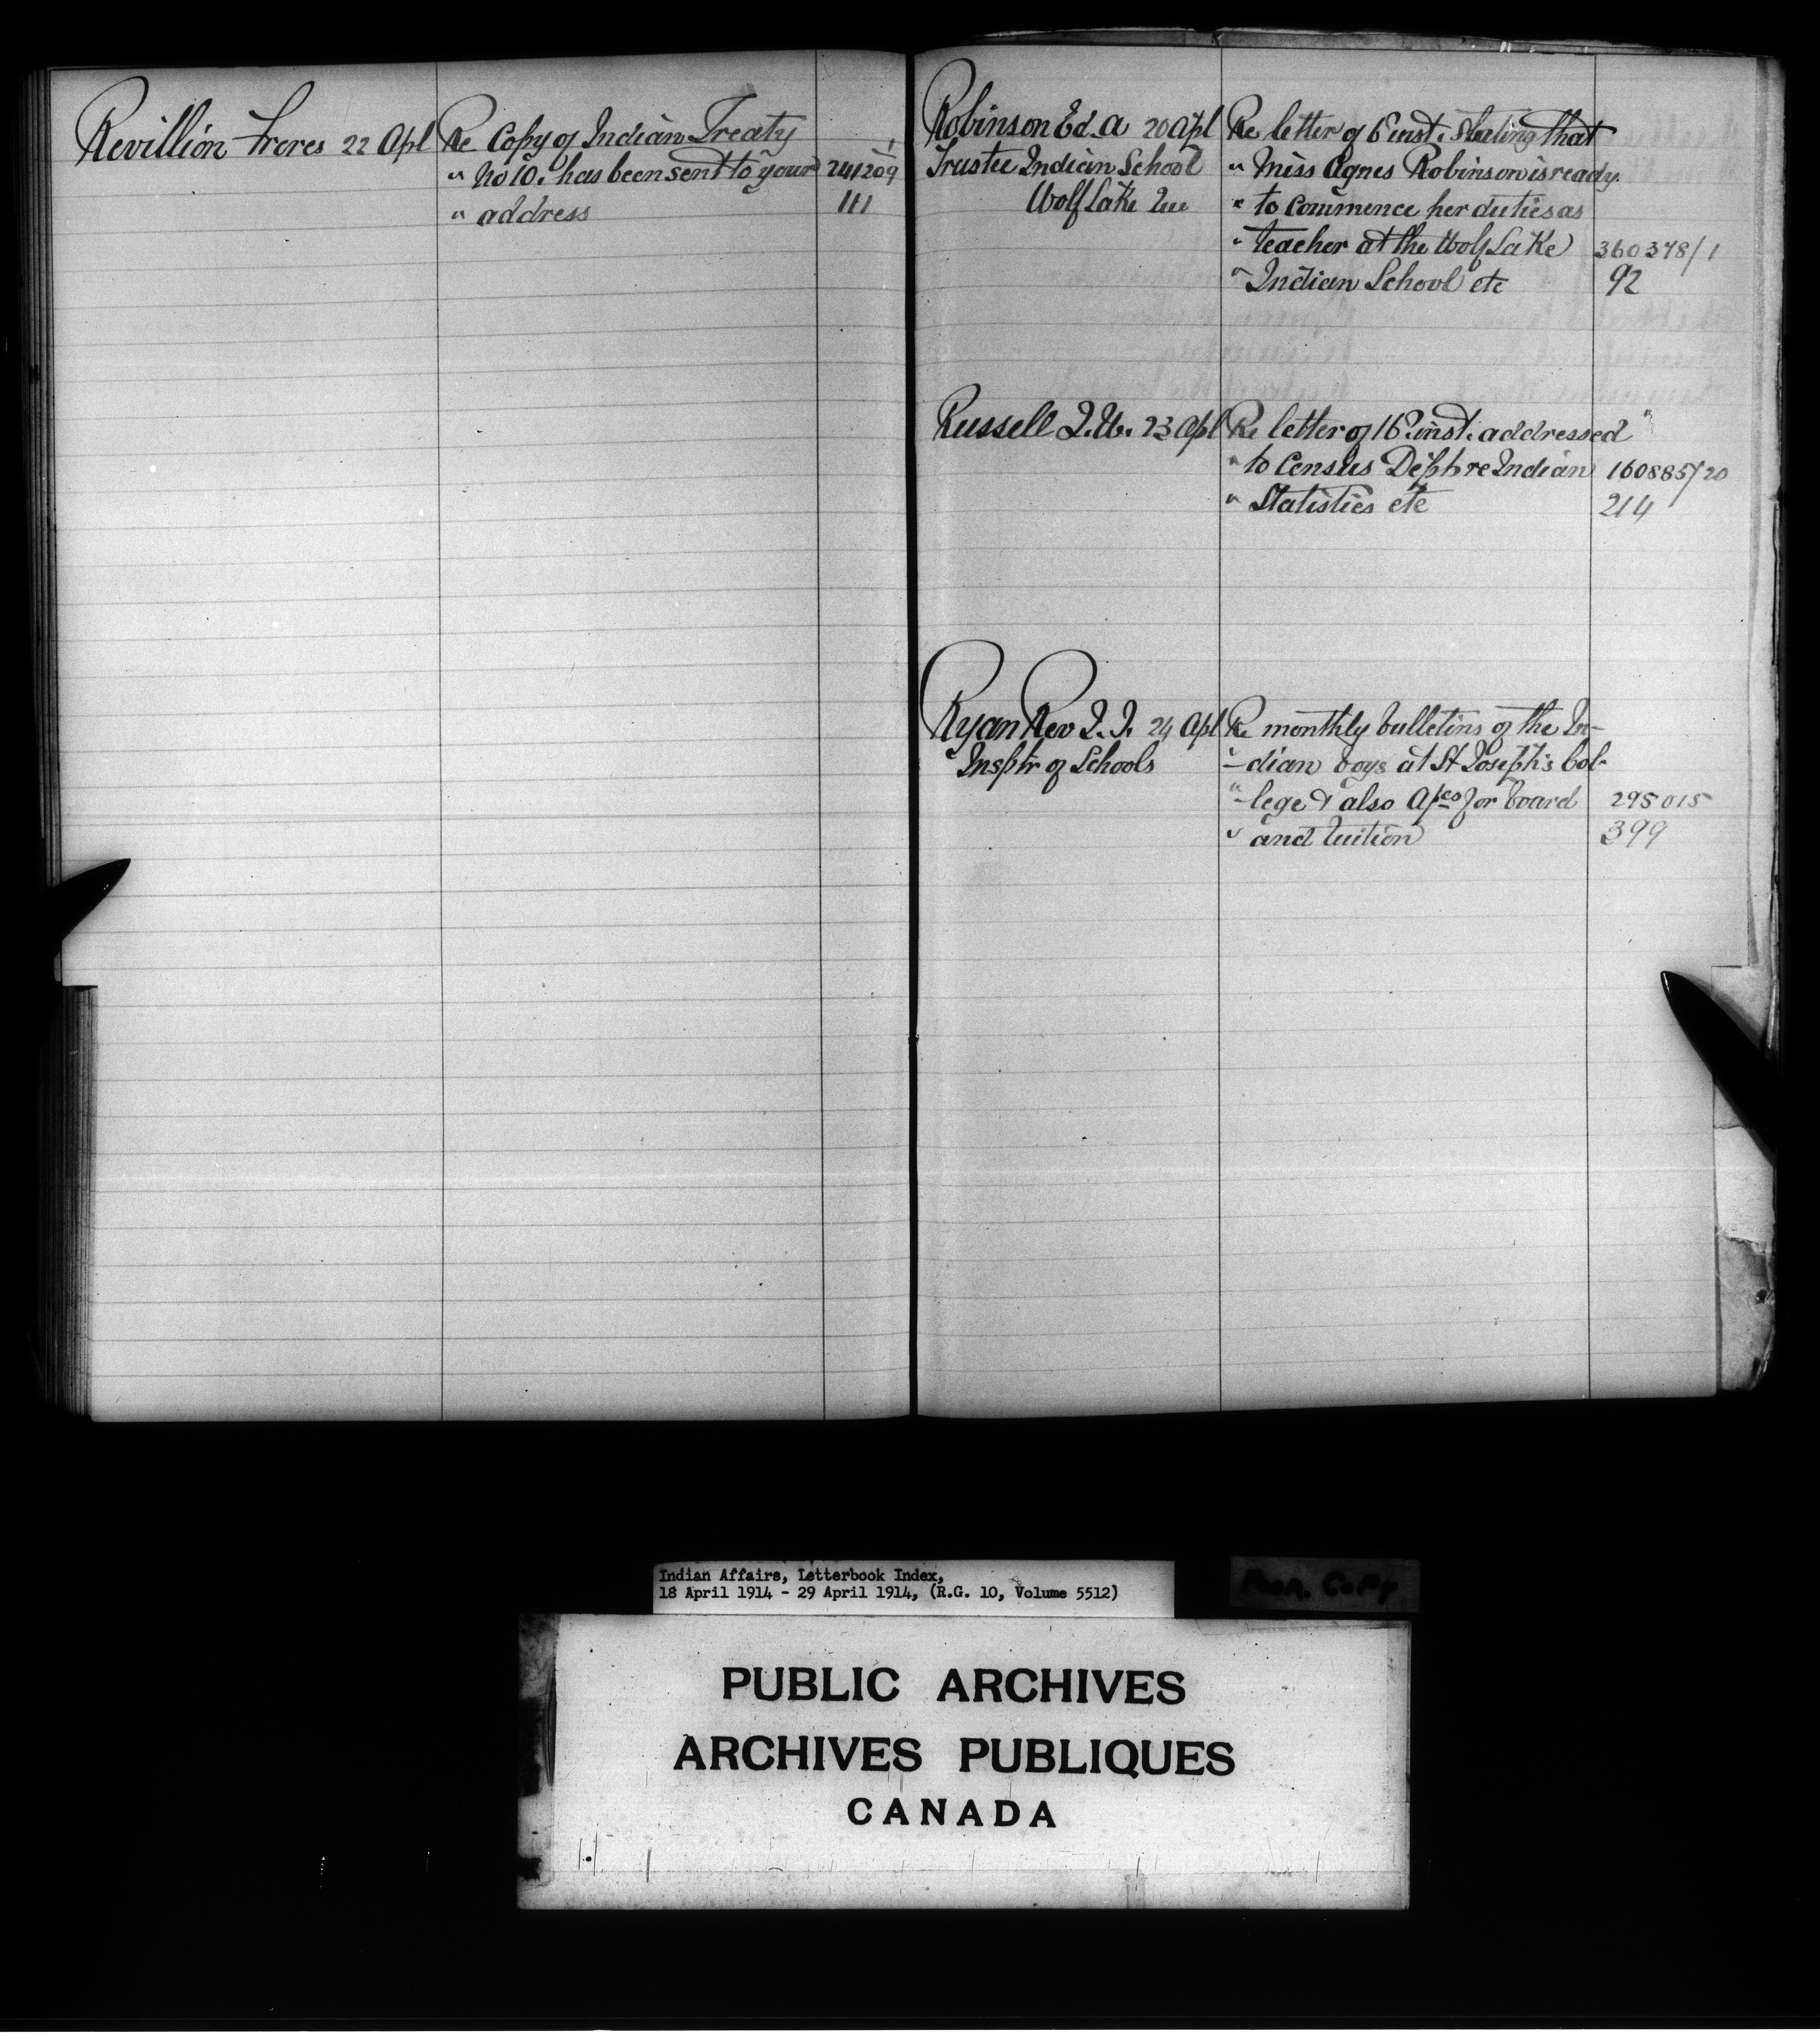 Revillion Freres 22 Apl Re Copy of Indian Treaty
" No 10. has been sent to your 241209
" address 111
Robinson Ed. A 20 Apl Re letter of 6 inst. stating that
Trustee Indian School " Miss Agnes Robinson is ready
Wolf Lake Que " to commence her duties as
" teacher at the Wolf Lake 360378/1
" Indian School etc 92
Russell 23 Apl Re letter of 16 inst. addressed
" to Census Dept re Indian 160885/20
" Statistics etc 214
Ryan Rev 24 Apl Re monthly bulletins of the In-
Insptr of Schools " -dian boys at St Joseph's Col-
" -lege & also A/cs for board 295015
" and tuition 399
Indian Affairs, Letterbook Index,
18 April 1914 - 29 April 1914, (R.G. 10, Volume 5512)
Poor Copy
PUBLIC ARCHIVES
ARCHIVES PUBLIQUES
CANADA